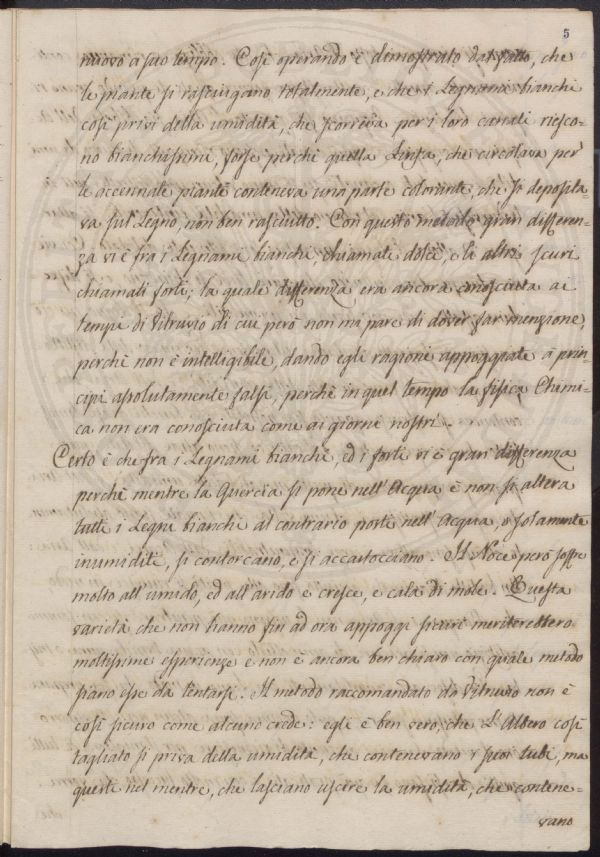 5
nuovo a suo tempo. Così operando è demostrato dal fatto, che
le piante si rasciugano totalmente, e che i Legnami bianchi
così privi della umidità, che scorreva per i loro canali riesco-
no bianchissimi, forse perchè quella Linfa, che circolava per
le accennate piante conteneva una parte colorante, che si deposita-
va sul Legno, non ben rasciutto. Con questo metodo gran differen-
za vi è fra i Legnami bianchi, chiamati dolci, e li altri scuri
chiamati forti; la quale differenza era ancora conosciuta ai
tempi di Vitruvio di cui però non mi pare di dover far menzione,
perchè non è intelligibile, dando egli ragioni appoggiate a prin-
cipi assolutamente falsi, perchè in quel tempo la fisica Chemi-
ca non era conosciuta come ai giorni nostri.
Certo è che fra i Legnami bianchi, ed i forti vi è gran differenza
perchè mentre la Quercia si pone nell'Acqua e non si altera
tutti i Legni bianchi al contrario posti nell'Acqua, o solamente
inumiditi, si contorcano, e si accartocciano. Il Noce però soffre
molto all'umido, ed all'arido e cresce, e cala di mole. Questa
varietà che non hanno fin ad ora appoggi sicuri meriterebbero
moltissime esperienze e non è ancora ben chiaro con quale metodo
siano esse da tentarsi. Il metodo raccomandato da Vitruvio non è
così sicuro come alcuno crede: egli è ben vero, che L'Albero così
tagliato si priva della umidità, che contenevano i suoi tubi, ma
questi nel mentre, che lasciano uscire la umidità, che contene-
vano